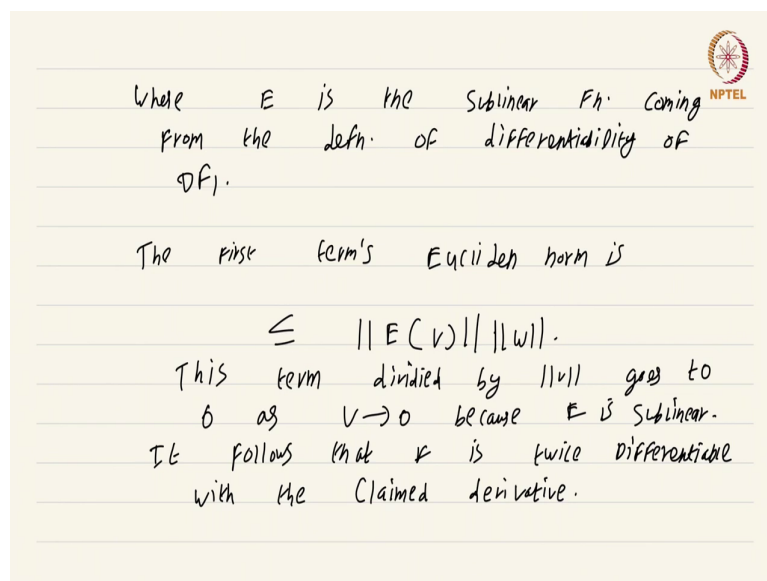 Where E is the Sublinear Fn. Coming
NPTEL
From the defn. of differentiability of
DF1.
The first term's Eucliden norm is
≤ ||E(v)|| ||w||.
This term dividied by ||v|| goes to
0 as v→0 because E is Sublinear.
It follows that F is twice Differentiable
with the Claimed derivative.